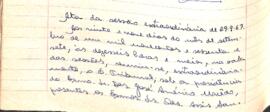 Ata da sessão extraordinária de 29.9.67.
Aos vinte e nove dias do mês de setem-
bro de mil novecentos e sessenta e
sete, às dezesseis horas e meia, na sala
das sessões, reuniu-se, extraordinaria-
mente, o E. Tribunal, sob a presidência
do Exmo. Sr. Des. José Américo Macedo,
presentes os Exmos. Srs. Des. Assis San-